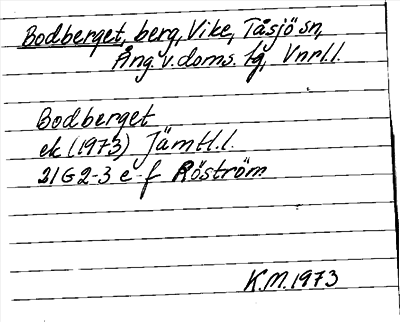 Bodberget, berg, Vike, Tåsjö sn,
Ång. v. doms. tg, Vnrl.l.
Bodberget
ek (1973) Jämtl.l.
21G 2-3 e-f Röström
K.M. 1973